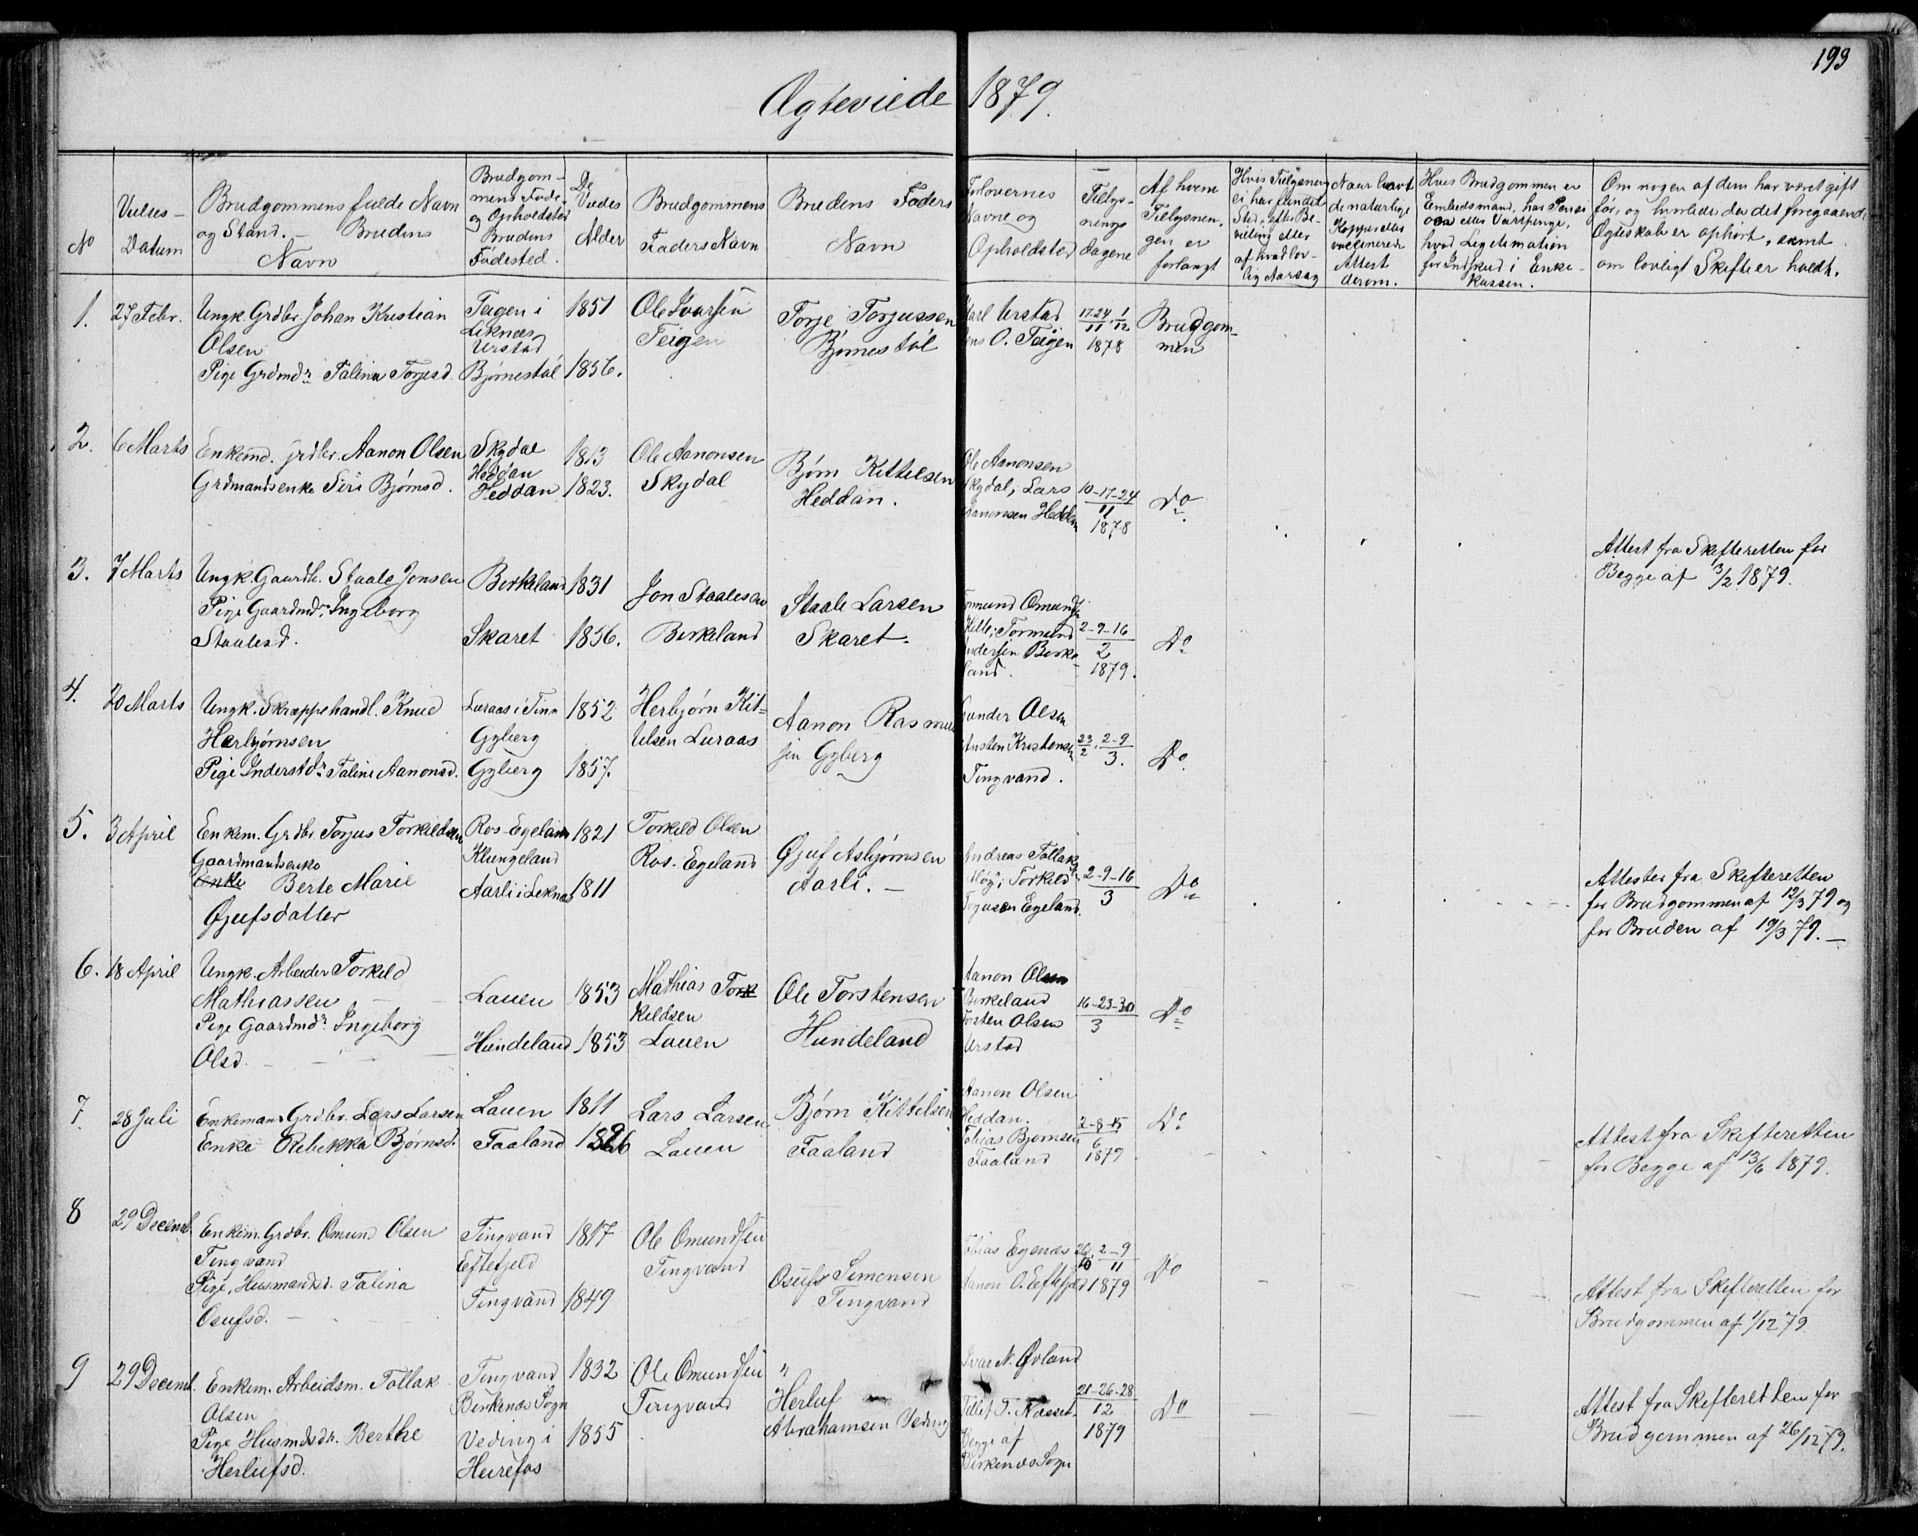 193
Ægteviede 1879.
No
Vielses-
Datum
Brudgommens fulde Navn
og Stand. — Brudens
Navn
Brudgom-
mens Føde-
og Opholdsted
Brudens
Fødested.
De
Viedes
Alder
Brudgommens
Faders Navn
Brudens Faders
Navn
Forlovernes
Navne og
Opholdsted
Tillys-
nings
dagene
Af hvem
Tillysnin-
gen er
forlangt
Hvis Tillysning
ei har fundet
Sted, efter Be-
villing eller
af hvad lov-
lig Aarsag
Naar havt
de naturlige
Kopper eller
vaccinerede
Attest
derom.
Hvis Brudgommen er
Embedsmand, har Pensi
on eller Vartpenge,
hvad Legitimation
for Indskud i Enke-
kassen.
Om nogen af dem har været gift
før, og hvorledes da det foregaaende
Ægteskab er ophørt, samt
om lovligt Skifte er holdt.
1.
27 Febr.
Ungk. Grdbr. Johan Kristian
Olsen
Pige Grdmdr. Talina Torjusd.
Teigen i
Leknæs
Urstad
Bjørnestøl
1851
1856.
Ole Ivarsen
Teigen
Torje Torjussen
Bjørnestøl
Karl Urstad
Jens O. Teigen
17-24/11 1/12
1878
Brudgom-
men
2.
6 Marts
Enkemd. grdbr. Aanon Olsen
Grdmandsenke Siri Bjørnsd.
Skydal
Heddan
Heddan
1813
1823.
Ole Aanonsen
Skydal
Bjørn Kittelsen
Heddan.
Ole Aanonsen
Skydal, Lars
Aanonsen Heddan
10-17-24/11
1878
Do
Attest fra Skifteretten for
Begge af 3/2 1879.
3.
7 Marts
Ungk. Gaardb. Staale Jonsen
Pige Gaardmdr. Ingeborg
Staalesd.
Birkeland
Skaret
1831
1856.
Jon Staalesen
Birkeland
Staale Larsen
Skaret.
Tormund Omunds.
Hille, Tormund
Andersen Birke
land.
2-9-16/2
1879.
Do
4.
20 Marts
Ungk. Skræppehandl. Knud
Herbjørnsen
Pige Inderstdr. Taline Aanonsd.
Luraas i Tinn
Gyberg
Gyberg
1852
1857.
Herbjørn Kit-
telsen Luraas
Aanon Rasmus
sen Gyberg
Gunder Olsen
Austen Kristensen
Tingvand.
23/2. 2-9/3.
Do
5.
3 April
Enkem. Grdbr. Torjus Torkildsen
Gaardmandsenke
Enke Berte Marie
Øjufsdatter
Ros-Egeland
Klungeland
Aarli i Leknæs
1821
1811
Torkild Olsen
Ros-Egeland
Øjuf Asbjørnsen
Aarli. —
Andreas Tollaks
Torkild
Torjusen Egeland.
2-9-16/3
Do
Attester fra Skifteretten
for Brudgommen af 12/3 79 og
for Bruden af 19/3 79. —
6.
18 April
Ungk. Arbeider Torkild
Mathiassen
Pige Gaardmdr. Ingeborg
Olsd.
Lauen
Hundeland
1853
1853
Mathias Tork
kildsen
Lauen
Ole Torstensen
Hundeland
Aanon Olsen
Birkeland
Torsten Olsen
Urstad
16-23-30/3
Do
7.
28 Juli
Enkemand Grdbr. Lars Larsen
Enke Rebekka Bjørnsd.
Lauen
Faaland
1811
Lars Larsen
Lauen
Bjørn Kittelsen
Faaland
Aanon Olsen
Heddan.
Tobias Bjørnsen
Faaland
2-8-15/6
1879
Do
Attest fra Skifteretten
for Begge af 13/6 1879.
8
29 Decemb.
Enkem. Grdbr. Omund Olsen
Tingvand
Pige, Husmandsd. Talina
Osufsd.
Tingvand
Eftefjeld
Tingvand
1817
1849
Ole Omundsen
Tingvand
Osufs Simonsen
Tingvand
Tobias Egenæs
Aanon O. Eftefjeld
26/10. 2-9/11
1879
Do
Attest fra Skifteretten for
Brudgommen af 1/12 79.
9
29 Decemb.
Enkem. Arbeidsm. Tollak
Olsen
Pige Husmdsdr. Berthe
Herlufsd.
Tingvand
Birkenæs Sogn
Veding i
Heirefos
1832
1855
Ole Omundsen
Tingvand
"
Herluf
Abrahamsen Veding
Ivar N. Øvland
Tellef T. Næset
Begge af
Birkenæs Sogn
21-26-28/12
1879
Do
Attest fra Skifteretten for
Brudgommen af 26/12 79.